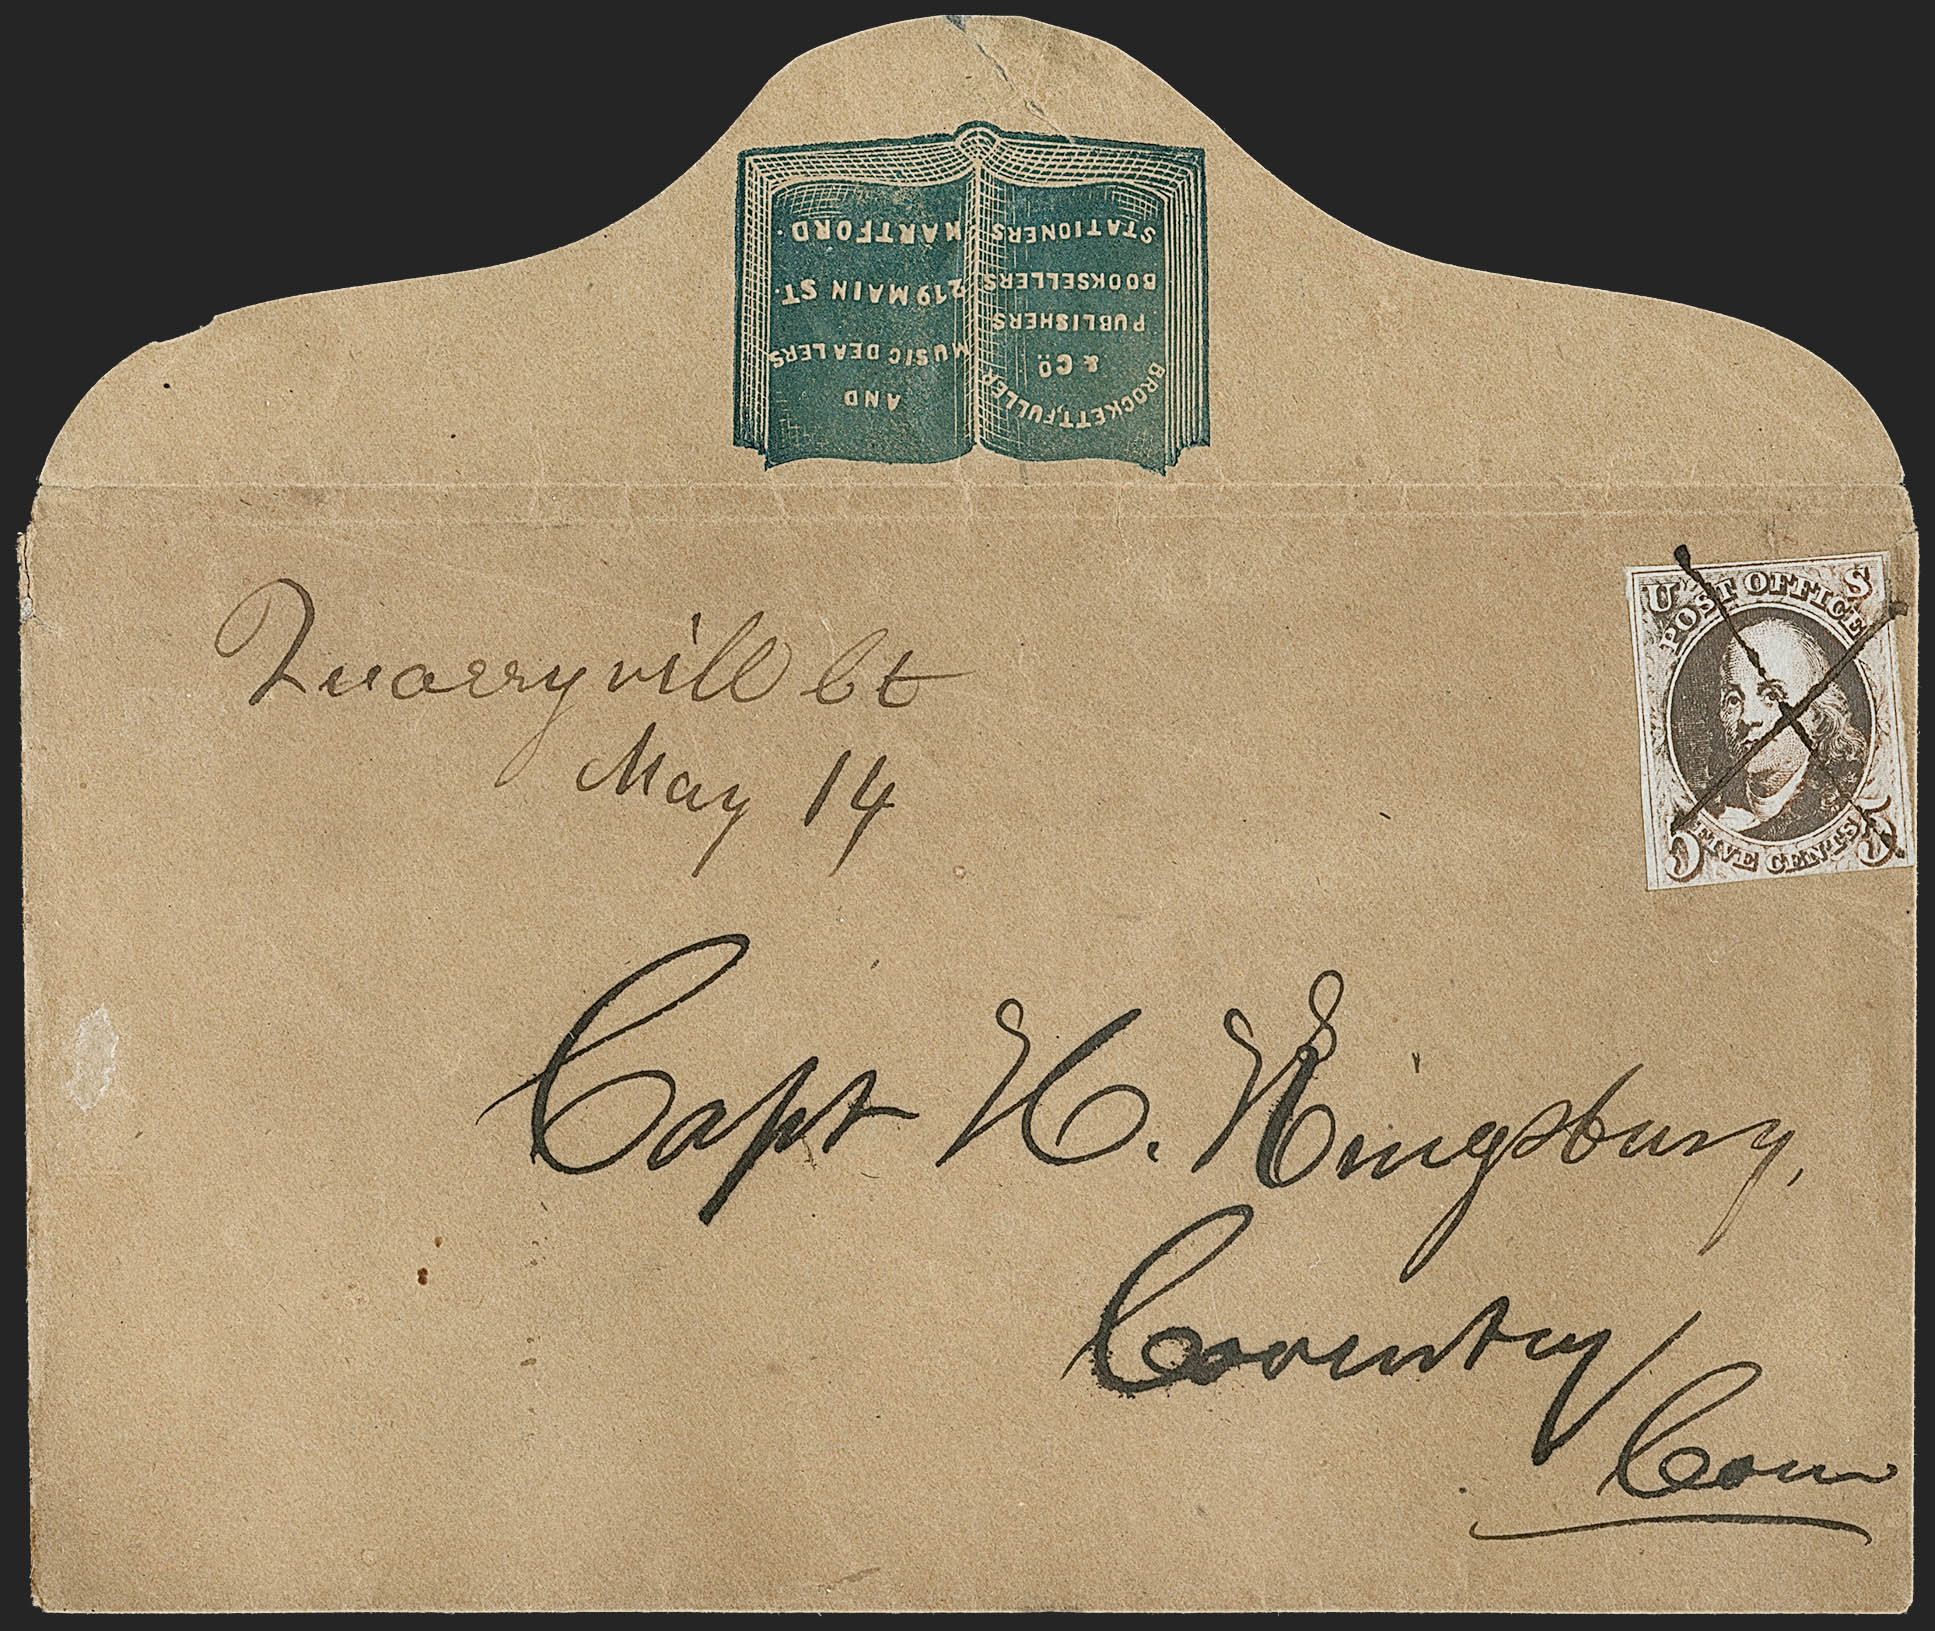 BROCKETT, FULLER
& CO.
PUBLISHERS
BOOKSELLERS
STATIONERS
AND
MUSIC DEALERS
219 MAIN ST.
HARTFORD.
U S
POST OFFICE
FIVE CENTS
5 5
Quarryvill Ct
May 14
Capt H. Kingsbury,
Coventry
Conn